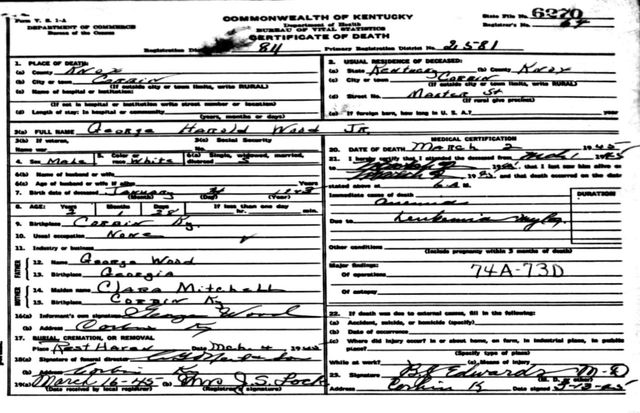 Form V. S. 1-A
DEPARTMENT OF COMMERCE
Bureau of the Census
COMMONWEALTH OF KENTUCKY
Department of Health
BUREAU OF VITAL STATISTICS
CERTIFICATE OF DEATH
State File No. 6270
Registrar's No.
Registration District No. 84
Primary Registration District No. 2581
1. PLACE OF DEATH:
(a) County KNOX
(b) City or town CORBIN
(If outside city or town limits, write RURAL)
(c) Name of hospital or institution:
(If not in hospital or institution write street number or location)
(d) Length of stay: In hospital or community
(years, months or days)
2. USUAL RESIDENCE OF DECEASED:
(a) State Kentucky (b) County Knox
(c) City or town CORBIN
(If outside city or town limits, write RURAL)
(d) Street No. Master St
(If rural give precinct)
(e) If foreign born, how long in U. S. A.? (years)
3(a) FULL NAME George Harold Wood JR.
3(b) If veteran, name war
3(c) Social Security No.
4. Sex Male
5. Color or race White
6(a) Single, widowed, married, divorced
6(b) Name of husband or wife
6(c) Age of husband or wife if alive
7. Birth date of deceased January
(Month) (Day) (Year)
8. AGE: Years 2 Months 1 Days 28 If less than one day hr. min.
9. Birthplace CORBIN Ky.
10. Usual occupation None
11. Industry or business
FATHER
12. Name George Wood
13. Birthplace Georgia
MOTHER
14. Maiden name Clara Mitchell
15. Birthplace CORBIN Ky
16(a) Informant's own signature George Wood
(b) Address Corbin Ky
17. BURIAL, CREMATION, OR REMOVAL
Place Rest Haven Date Mch 4 1945
18(a) Signature of funeral director
(b) Address Corbin Ky
19(a) March 16-45 (b) Mrs J. S. Lock
(Date received by local registrar) (Registrar's signature)
MEDICAL CERTIFICATION
20. DATE OF DEATH March 2 1945
21. I hereby certify that I attended the deceased from Mch 1 1945
to 1945, that I last saw him alive on
1945 and that death occurred on the date
stated above at M.
Immediate cause of death Anemia
DURATION
Due to Leukemia
Other conditions
(Include pregnancy within 3 months of death)
Major findings:
Of operations 74A-73D
Of autopsy
22. If death was due to external causes, fill in the following:
(a) Accident, suicide, or homicide (specify)
(b) Date of occurrence
(c) Where did injury occur? In or about home, on farm, in industrial place, in public place?
(Specify type of place)
While at work? (e) Means of injury
23. Signature B. J. Edwards M-D
(M. D. or other)
Address Corbin K Date signed